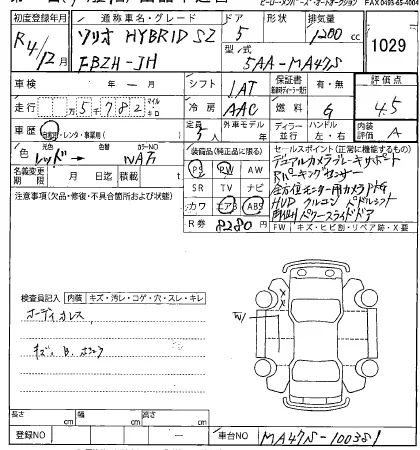 ヒーロー・メンバーズ・オートオークション FAX 0493-65-4004
初度登録年月 通称車名・グレード ドア 形状 排気量
R4/12月 ソリオ HYBRID SZ 5 1200 cc
型式 1029
FBZH-JH 5AA-MA47S
車検 年 月 シフト IAT 保証書 有・無 評価点
走行 57782 マイル キロ 冷房 AAC 燃料 G 4.5
車歴 ・レンタ・事業用 定員 5 人 外車モデル ディーラー 並行 ハンドル 左・右 内装評価 A
色 元色 レッド 色替 カラーNO
装備品(純正品に限る) セールスポイント(正常に機能するもの)
名義変更期限 月 日迄 積載 t PS PW AW デュアルカメラブレーキサポート
注意事項(欠品・修復・不具合箇所および状態) SR TV ナビ Rパーキングセンサー
カワ エアB ABS HUD クルコン パドルシフト
R券 8280 円 両側パワースライドドア
FW キズ・ヒビ割・リペア跡・X要
検査員記入 内装 キズ・汚レ・コゲ・穴・スレ・キレ
長さ cm 幅 cm 高さ cm
登録NO 車台NO MA47S-100381